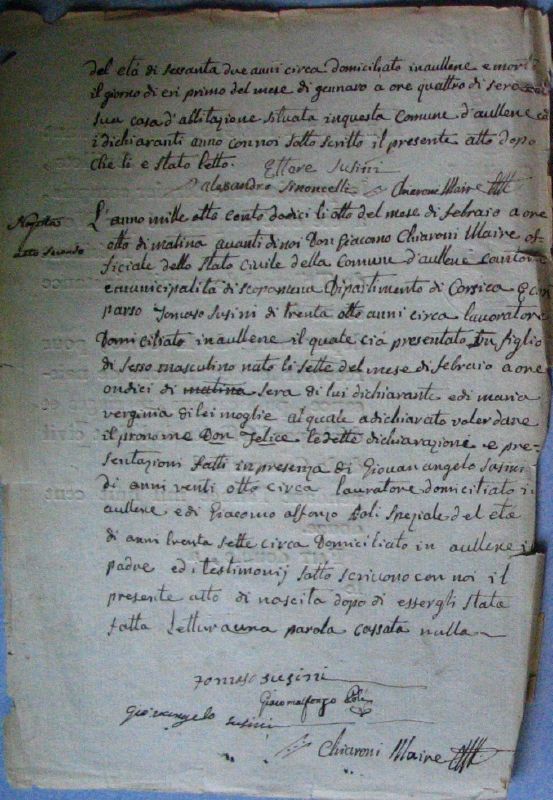 del età di sessanta due anni circa domiciliato in aullene e morì
il giorno di eri primo del mese di gennaro a ore quattro di sera
sua casa d'abbitazione situata in questa Comune d'aullene
i dichiaranti anno con noi sotto scritto il presente atto dopo
che li e stato letto. Ettore Susini
alesandro Simoncelli Chiaroni Maire
L'anno mille otto cento dodici li otto del mese di febraio a ore
Nascita
otto di matina avanti di noi Don Giacomo Chiaroni Maire of
atto secondo
ficiale dello stato Civile della Comune d'aullene
canunicipalità di scopamena Dipartimento di Corsica è con
parso Tomaso Susini di trenta otto anni circa lavoratore
Domiciliato in aullene il quale cià presentato un figlio
di sesso masculino nato li sette del mese di febraio a ore
ondici di matina sera di lui dichiarante e di maria
verginia di lei moglie al quale a dichiarato voler dare
il pronome Don Felice le dette dichiarazione e pre
sentazioni fatti in presenza di Giovan angelo Susini
di anni venti otto circa lauratore domiciliato
aullene e di Giacomo alfonzo Poli speziale del età
di anni trenta sette circa Domiciliato in aullene il
padre ed i testimonij sotto scrivono con noi il
presente atto di nascita dopo di essergli stata
fatta Lettura una parola cassata nulla
Tomaso susini
Giacomalfonzo Poli
Giovangelo susini
Chiaroni Maire